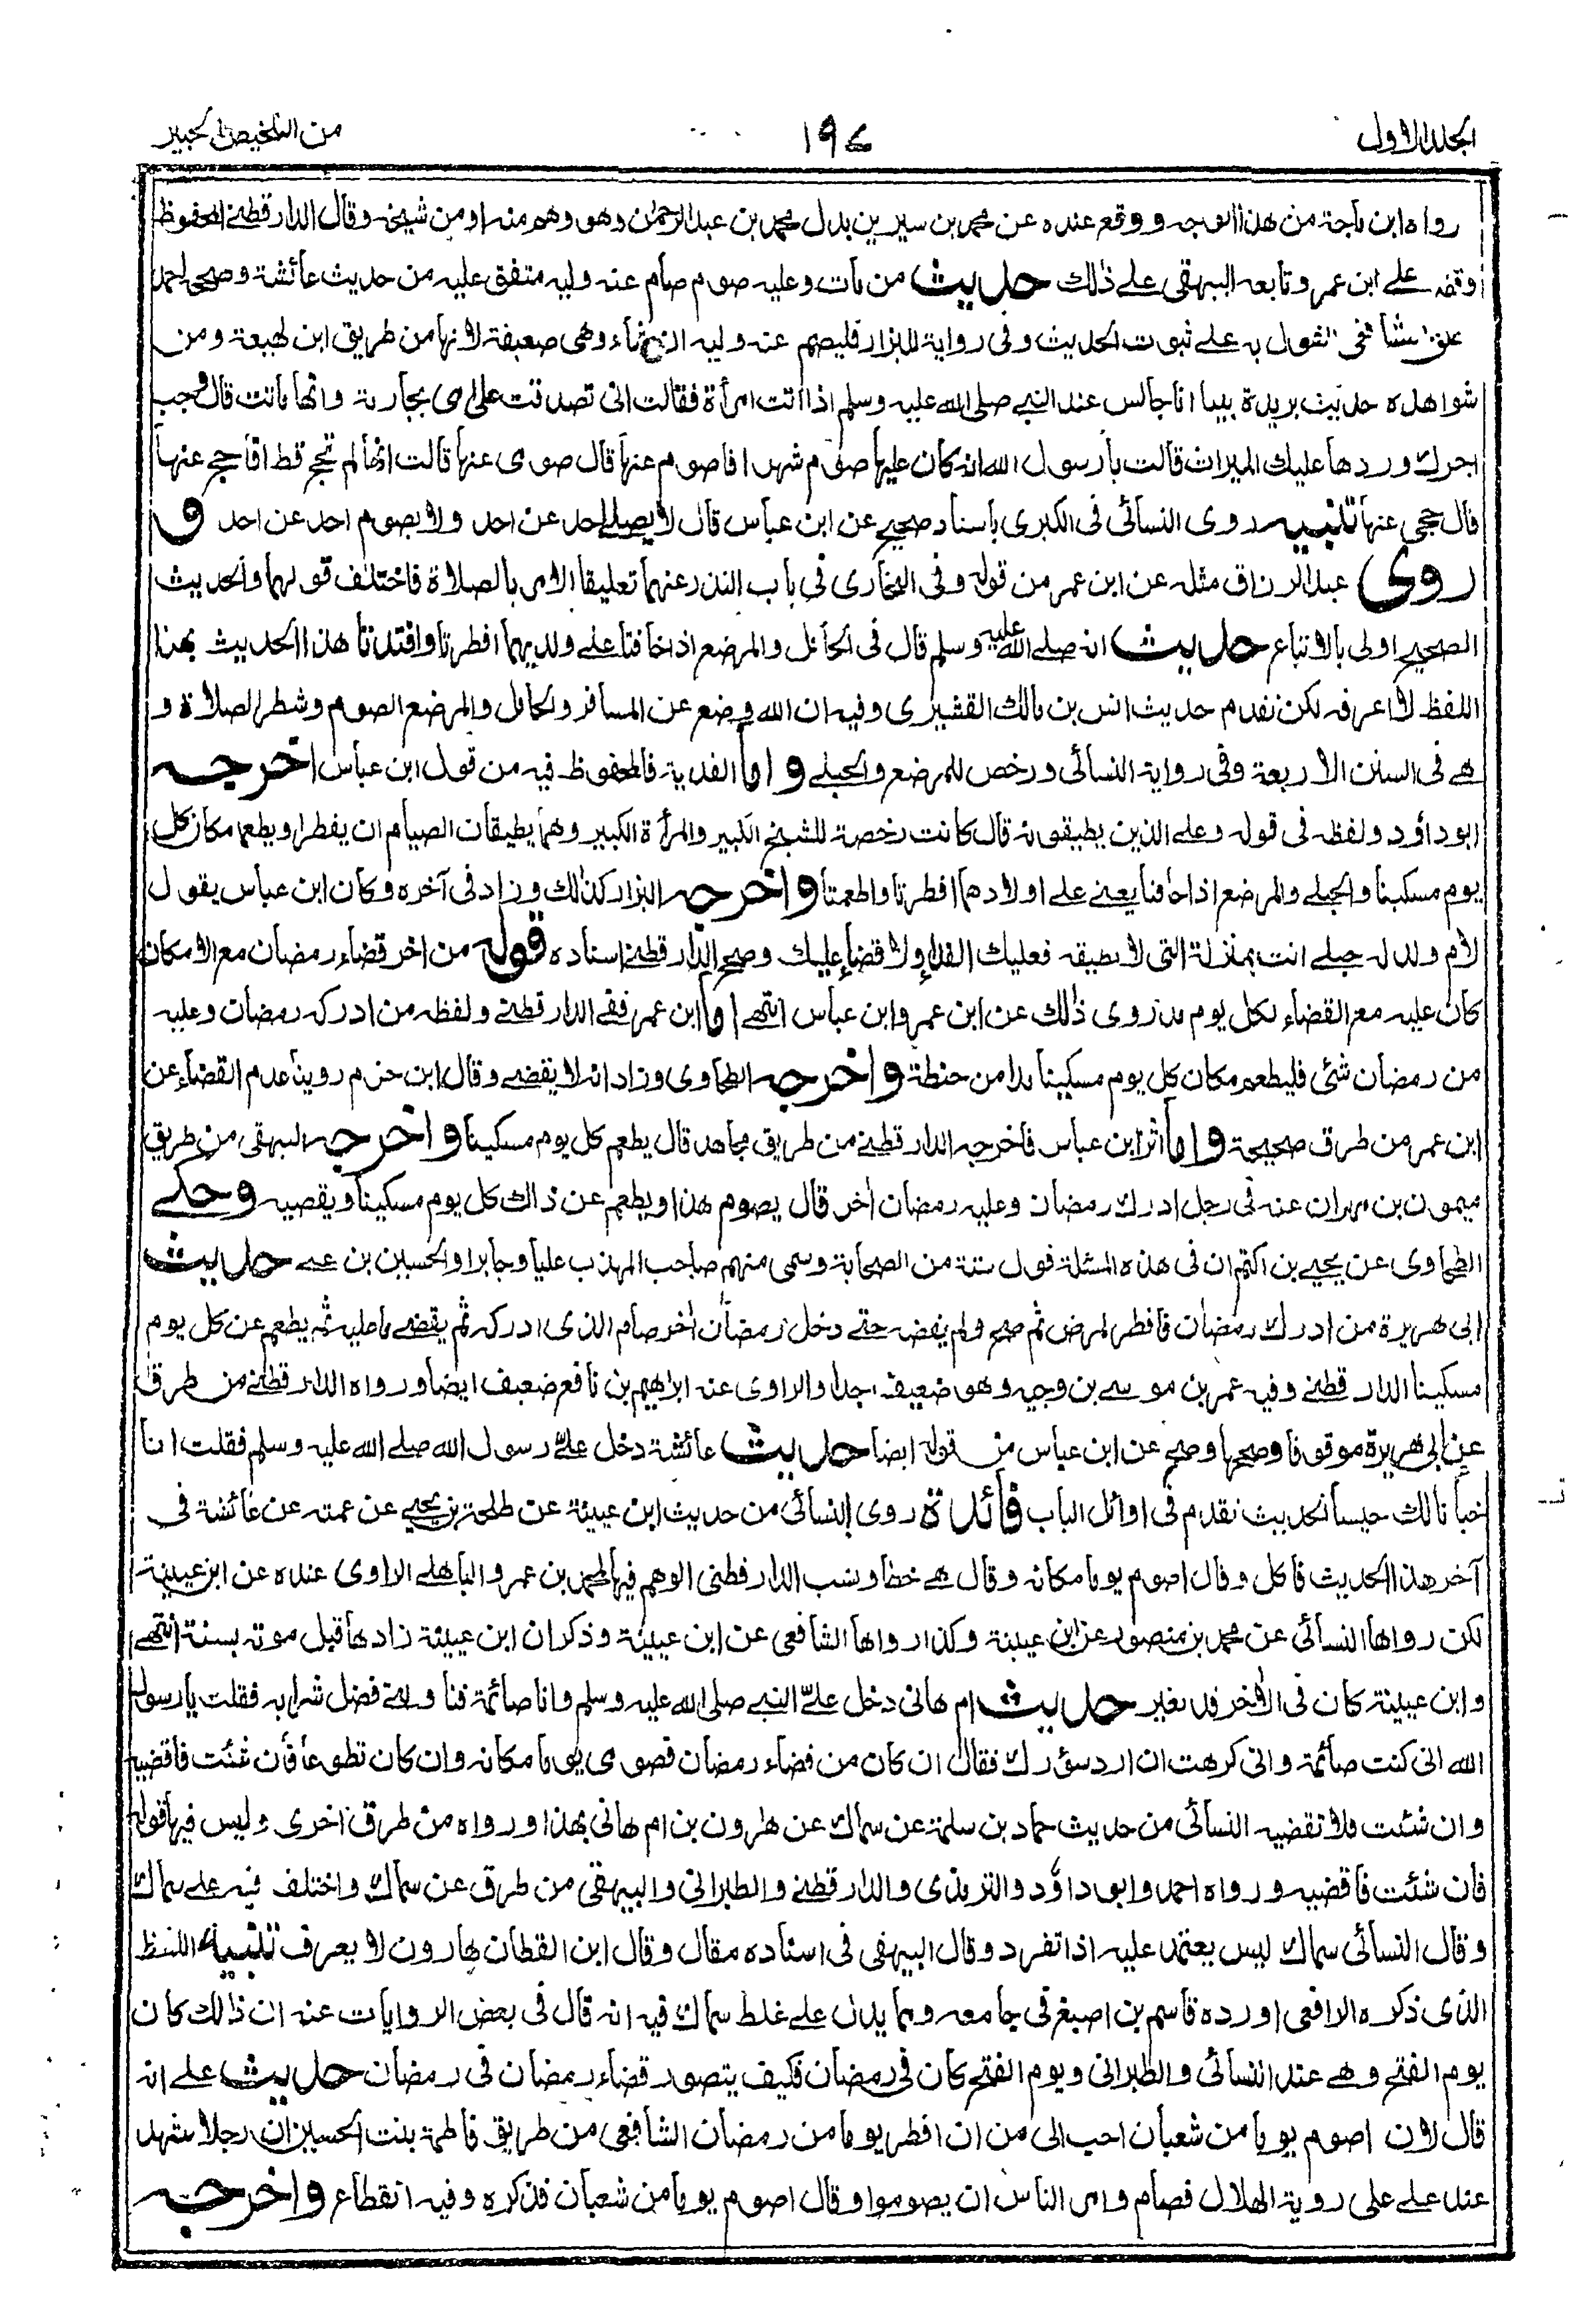 المجلد الاول ١٩٧ من التلخيص الحبير
رواه ابن ماجة من هذا الوجه ووقع عنده عن محمد بن سيرين بدل محمد بن عبد الرحمٰن وهو وهم منه او من شيخه وقال الدارقطني المحفوظ
وقفه علے ابن عمر وتابعه البيهقى علے ذٰلك حديث من مات وعليه صوم صام عنه وليه متفق عليه من حديث عائشة وصححه احمد
علق الشافعى القول به علے ثبوت الحديث وفى رواية للبزار فليصم عنه وليه ان شاء وهى ضعيفة لانها من طريق ابن لهيعة ومن
شواهده حديث بريدة بينا انا جالس عند النبے صلى الله عليه وسلم اذا اتت امرأة فقالت انى تصدقت على امى بجارية وانها ماتت قال وجب
اجرك وردها عليك الميراث قالت يا رسول الله انه كان عليها صوم شهر افاصوم عنها قال صومى عنها قالت انها لم تحج قط افاحج عنها
قال حجى عنها تنبيه روى النسائى فى الكبرى باسناد صحيح عن ابن عباس قال لا يصلے احد عن احد ولا يصوم احد عن احد و
روى عبد الرزاق مثله عن ابن عمر من قوله وفى البخارى فى باب النذر عنهما تعليقا الامر بالصلاة فاختلف قولهما والحديث
الصحيح اولى بالاتباع حديث انه صلے الله عليه وسلم قال فى الحامل والمرضع اذا خافتا علے ولديهما افطرتا وافتدتا هذا الحديث بهذا
اللفظ لا اعرفه لكن تقدم حديث انس بن مالك القشيرى وفيه ان الله وضع عن المسافر والحامل والمرضع الصوم وشطر الصلاة و
هے فى السنن الاربعة وفى رواية النسائى ورخص للمرضع والحبلے واما الفدية فالمحفوظ فيه من قول ابن عباس اخرجه
ابو داؤد ولفظه فى قوله وعلے الذين يطيقونه قال كانت رخصة للشيخ الكبير والمرأة الكبير وهما يطيقان الصيام ان يفطرا ويطعما مكان كل
يوم مسكينا والحبلے والمرضع اذا خافتا يعنے علے اولادهما افطرتا واطعمتا واخرجه البزار كذلك وزاد فى آخره وكان ابن عباس يقول
لام ولد له حبلے انت بمنزلة التى لا تطيقه فعليك الفداء ولا قضاء عليك وصحح الدارقطنے اسناده قوله من اخر قضاء رمضان مع الامكان
كان عليه مع القضاء لكل يوم مد روى ذٰلك عن ابن عمر وابن عباس انتهے اما ابن عمر ففے الدارقطنے ولفظه من ادركه رمضان وعليه
من رمضان شئى فليطعم مكان كل يوم مسكينا مدا من حنطة واخرجه الطحاوى وزاد انه لا يقضے وقال ابن حزم روينا عدم القضاء عن
ابن عمر من طرق صحيحة واما اثر ابن عباس فاخرجه الدارقطنے من طريق مجاهد قال يطعم كل يوم مسكينا واخرجه البيهقى من طريق
ميمون بن مهران عنه فى رجل ادرك رمضان وعليه رمضان اٰخر قال يصوم هذا ويطعم عن ذاك كل يوم مسكينا ويقضيه وحكے
الطحاوى عن يحيے بن اكثم ان فى هذه المسئلة قول ستة من الصحابة وسمى منهم صاحب المهذب عليا وجابرا والحسين بن علے حديث
ابى هريرة من ادرك رمضان فافطر لمرض ثم صح ولم يقضه حتے دخل رمضان اٰخر صام الذى ادركه ثم يقضے ما عليه ثم يطعم عن كل يوم
مسكينا الدارقطنے وفيه عمر بن موسے بن وجيه وهو ضعيف جدا والراوى عنه ابراهيم بن نافع ضعيف ايضا ورواه الدارقطنے من طرق
عن ابى هريرة موقوفا وصححها وصح عن ابن عباس من قوله ايضا حديث عائشة دخل علىّ رسول الله صلے الله عليه وسلم فقلت انا
خبأنا لك حيسا الحديث تقدم فى اوائل الباب فائدة روى النسائى من حديث ابن عيينة عن طلحة بن يحيے عن عمته عن عائشة فى
آخر هذا الحديث فاكل وقال اصوم يوما مكانه وقال هے خطأ ونسب الدارقطنى الوهم فيها لمحمد بن عمرو الباهلے الراوى عنده عن ابن عيينة
لكن رواها النسائى عن محمد بن منصور عن ابن عيينة وكذا رواها الشافعى عن ابن عيينة وذكر ان ابن عيينة زادها قبل موته بسنة انتهے
وابن عيينة كان فى الاٰخر قد تغير حديث ام هانى دخل علىّ النبے صلى الله عليه وسلم وانا صائمة فناولنے فضل شرابه فقلت يا رسول
الله انى كنت صائمة وانى كرهت ان ارد سؤرك فقال ان كان من قضاء رمضان فصومى يوما مكانه وان كان تطوعا فان شئت فاقضيه
وان شئت فلا تقضيه النسائى من حديث حماد بن سلمة عن سماك عن هارون بن ام هانى بهذا ورواه من طرق اخرى وليس فيها قوله
فان شئت فاقضيه ورواه احمد وابو داؤد والترمذى والدارقطنے والطبرانى والبيهقى من طرق عن سماك واختلف فيه علے سماك
وقال النسائى سماك ليس يعتمد عليه اذا تفرد وقال البيهقى فى اسناده مقال وقال ابن القطان هارون لا يعرف تنبيه اللفظ
الذى ذكره الرافعى اورده قاسم بن اصبغ فى جامعه ومما يدل علے غلط سماك فيه انه قال فى بعض الروايات عنه ان ذالك كان
يوم الفتح وهے عند النسائى والطبرانى ويوم الفتح كان فى رمضان فكيف يتصور قضاء رمضان فى رمضان حديث علے انه
قال لان اصوم يوما من شعبان احب الى من ان افطر يوما من رمضان الشافعى من طريق فاطمة بنت الحسين ان رجلا شهد
عند علے على روية الهلال فصام وامر الناس ان يصوموا وقال اصوم يوما من شعبان فذكره وفيه انقطاع واخرجه